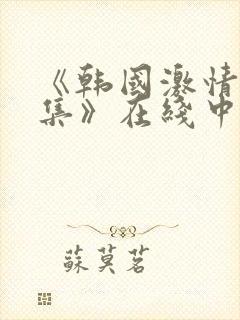 《韩国激情
集》在线中
苏莫茗